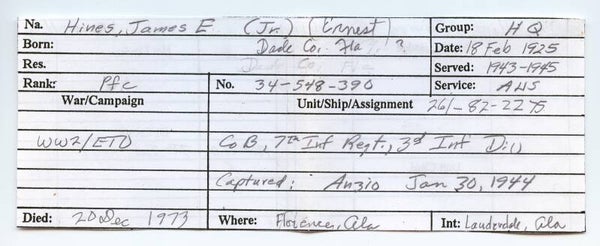 Na. Hines, James E (Jr.) (Ernest) Group: H Q
Born: Dade Co, Fla ? Date: 18 Feb 1925
Res. Dade Co, Served: 1943-1945
Rank: Pfc No. 34-548-390 Service: AUS
War/Campaign Unit/Ship/Assignment 261-82-2275
WW2/ETO Co B, 7th Inf Regt., 3d Inf Div
Captured: Anzio Jan 30, 1944
Died: 20 Dec 1973 Where: Florence, Ala Int: Lauderdale, Ala